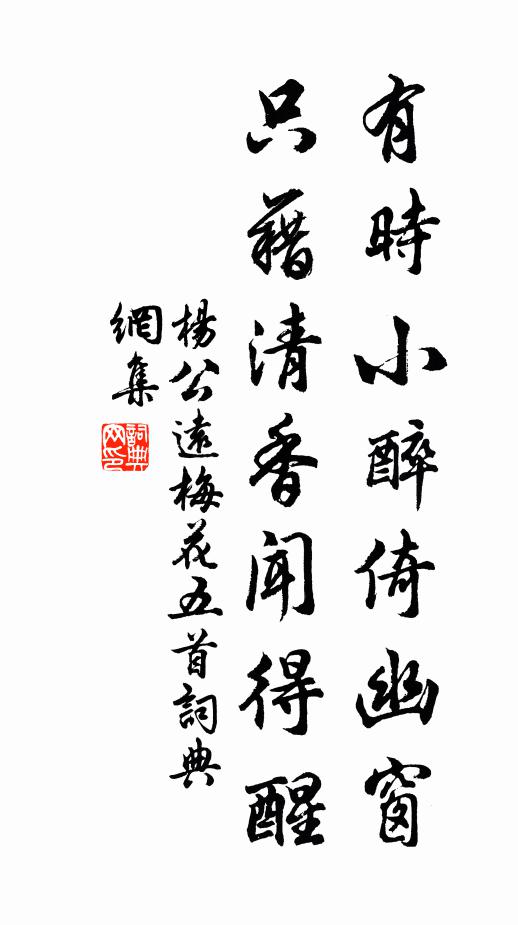 有時小醉倚幽窗
只藉清香聞得醒
楊公遠梅花五首詞典
網集
詞典
网印